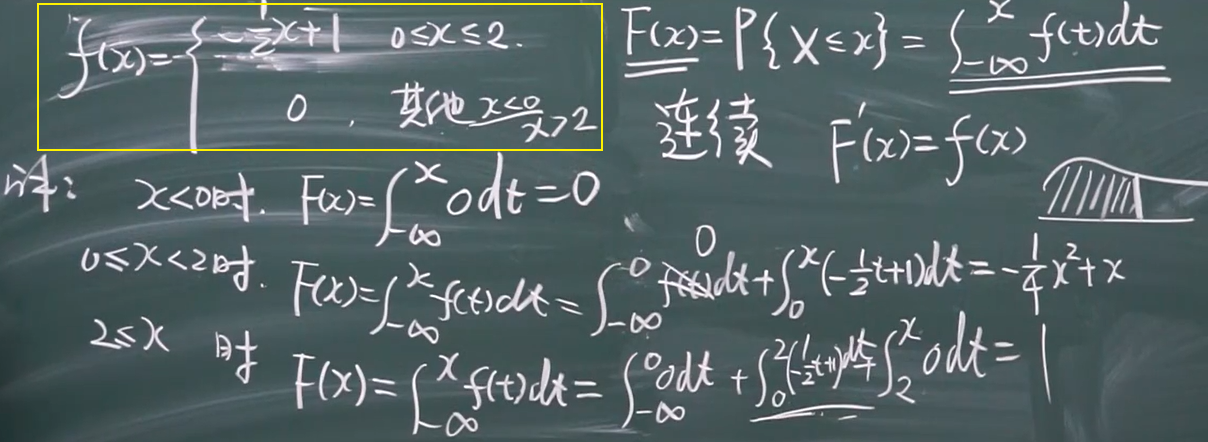 f(x)={ -1/2x+1 0≤x≤2.
0 , 其他 x<0 x>2
F(x)=P{X≤x}=∫_{-∞}^{x} f(t)dt
连续 F'(x)=f(x)
x<0时. F(x)=∫_{-∞}^{x} 0dt=0
0≤x<2时. F(x)=∫_{-∞}^{x} f(t)dt=∫_{-∞}^{0} 0dt+∫_{0}^{x}(-1/2t+1)dt=-1/4x²+x
2≤x 时 F(x)=∫_{-∞}^{x} f(t)dt=∫_{-∞}^{0} 0dt+∫_{0}^{2}(-1/2t+1)dt+∫_{2}^{x} 0dt=1